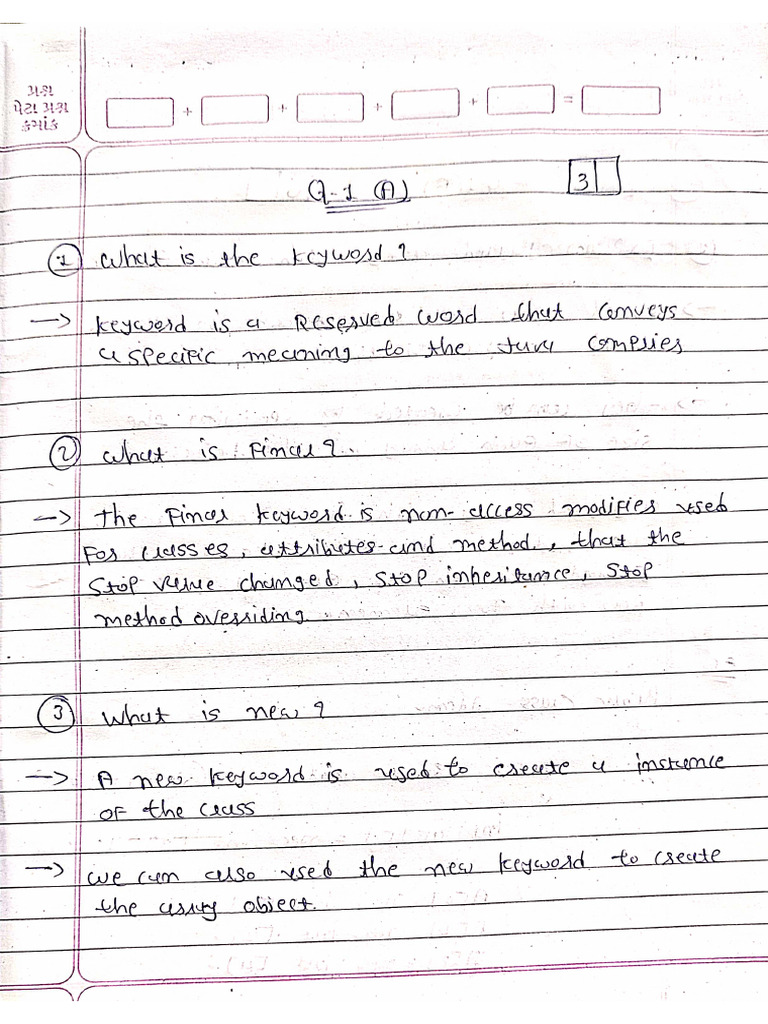 પ્રશ્ન
પેટા પ્રશ્ન
ક્રમાંક
+ + + + =
Q-1 (A)
3
① What is the keyword?
→ Keyword is a Reserved word that conveys
a specific meaning to the Java compiler
② What is Final?
→ The Final keyword is non-access modifier used
For classes, attributes and method, that the
Stop value changed, Stop inheritance, Stop
method overriding.
③ What is new?
→ A new keyword is used to create a instance
of the class
→ we can also used the new keyword to create
the array object.